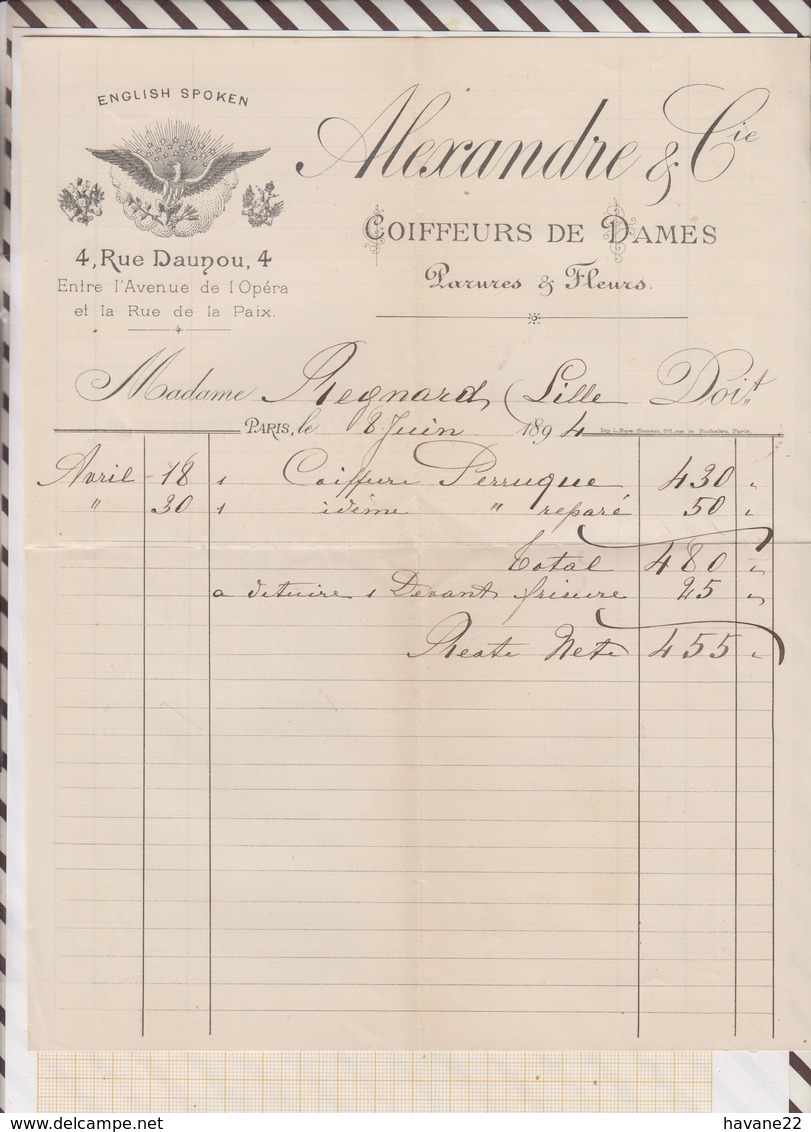 ENGLISH SPOKEN
Alexandre & Cie
COIFFEURS DE DAMES
Parures & Fleurs.
4, Rue Daunou, 4
Entre l'Avenue de l'Opéra
et la Rue de la Paix.
Madame Regnard, Lille Doit
PARIS, le 8 Juin 1894
Imp. L. Graveur, 66, rue de Richelieu, Paris.
Avril 18 1 Coiffure Perruque 430 "
" 30 1 idème " reparé 50 "
Total 480 "
a detuire 1 Devant frisure 25 "
Reste Net 455 "
delcampe.net
havane22